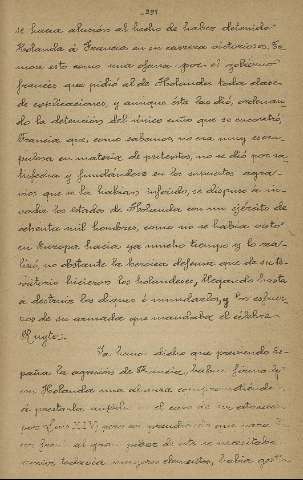 291
se hacia alusion al hecho de haber detenido
Holanda á Francia en su carrera victoriosa. To-
mose esto como una ofensa por el gobierno
francés que pidió al de Holanda toda clase
de esplicaciones, y aunque ésta las dió, ordenan-
do la detención del único cuño que se encontró,
Francia que, como sabemos, no era muy escru-
pulosa en materia de pretestos, no se dió por sa-
tisfecha y fundándose en los supuestos agra-
vios que se la habian inferido, se dispuso á in-
vadir los estados de Holanda con un ejército de
ochenta mil hombres, como no se habia visto
en Europa hacia ya mucho tiempo y lo rea-
lizó, no obstante la heroica defensa que de su te-
rritorio hicieron los holandeses, llegando hasta
á destruir los diques é inundarlos, y los esfuer-
zos de su armada que mandaba el célebre
Ruyter.
Ya hemos dicho que previendo Es-
paña la agresión de Francia, habia firmado
con Holanda una alianza comprometiéndose
á prestarla en el caso de ser atacada
por Luis XIV, pero
poder de este se necesitaba
todavia mayores elementos, habia